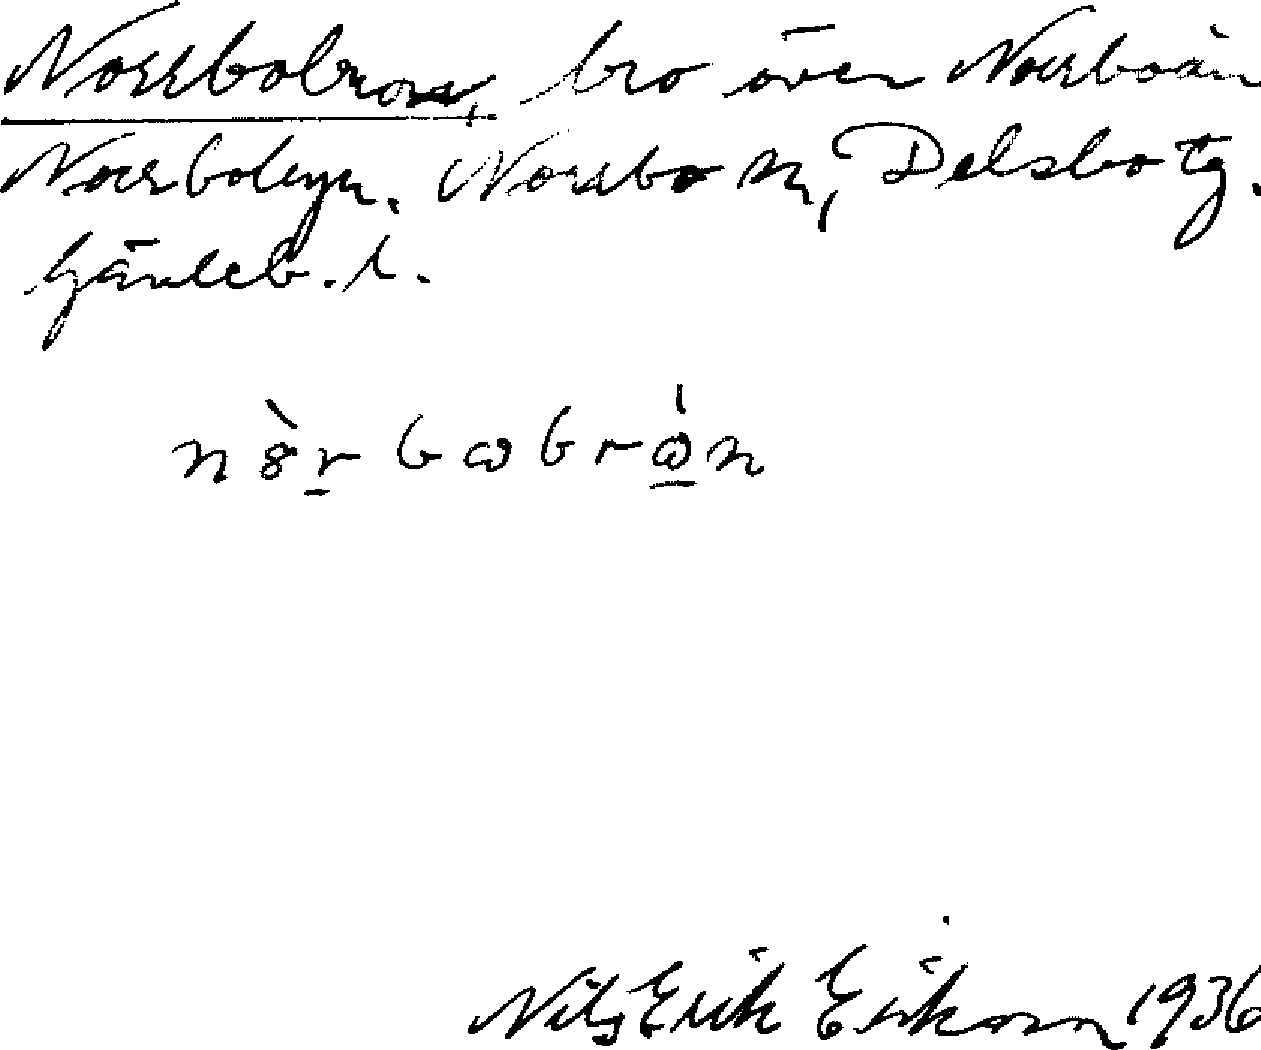 Norrbobron, bro över Norrboån
Norrbobyn. Norrbo sn, Delsbo tg.
Gävleb. l.
Nils Erik Erikson 1936